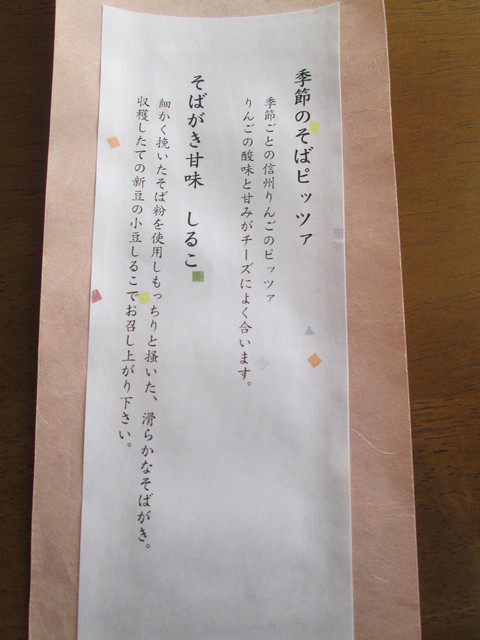 季節のそばピッツァ
季節ごとの信州りんごのピッツァ
りんごの酸味と甘みがチーズによく合います。
そばがき甘味　しるこ
細かく挽いたそば粉を使用しもっちりと掻いた、滑らかなそばがき。
収穫したての新豆の小豆しるこでお召し上がり下さい。